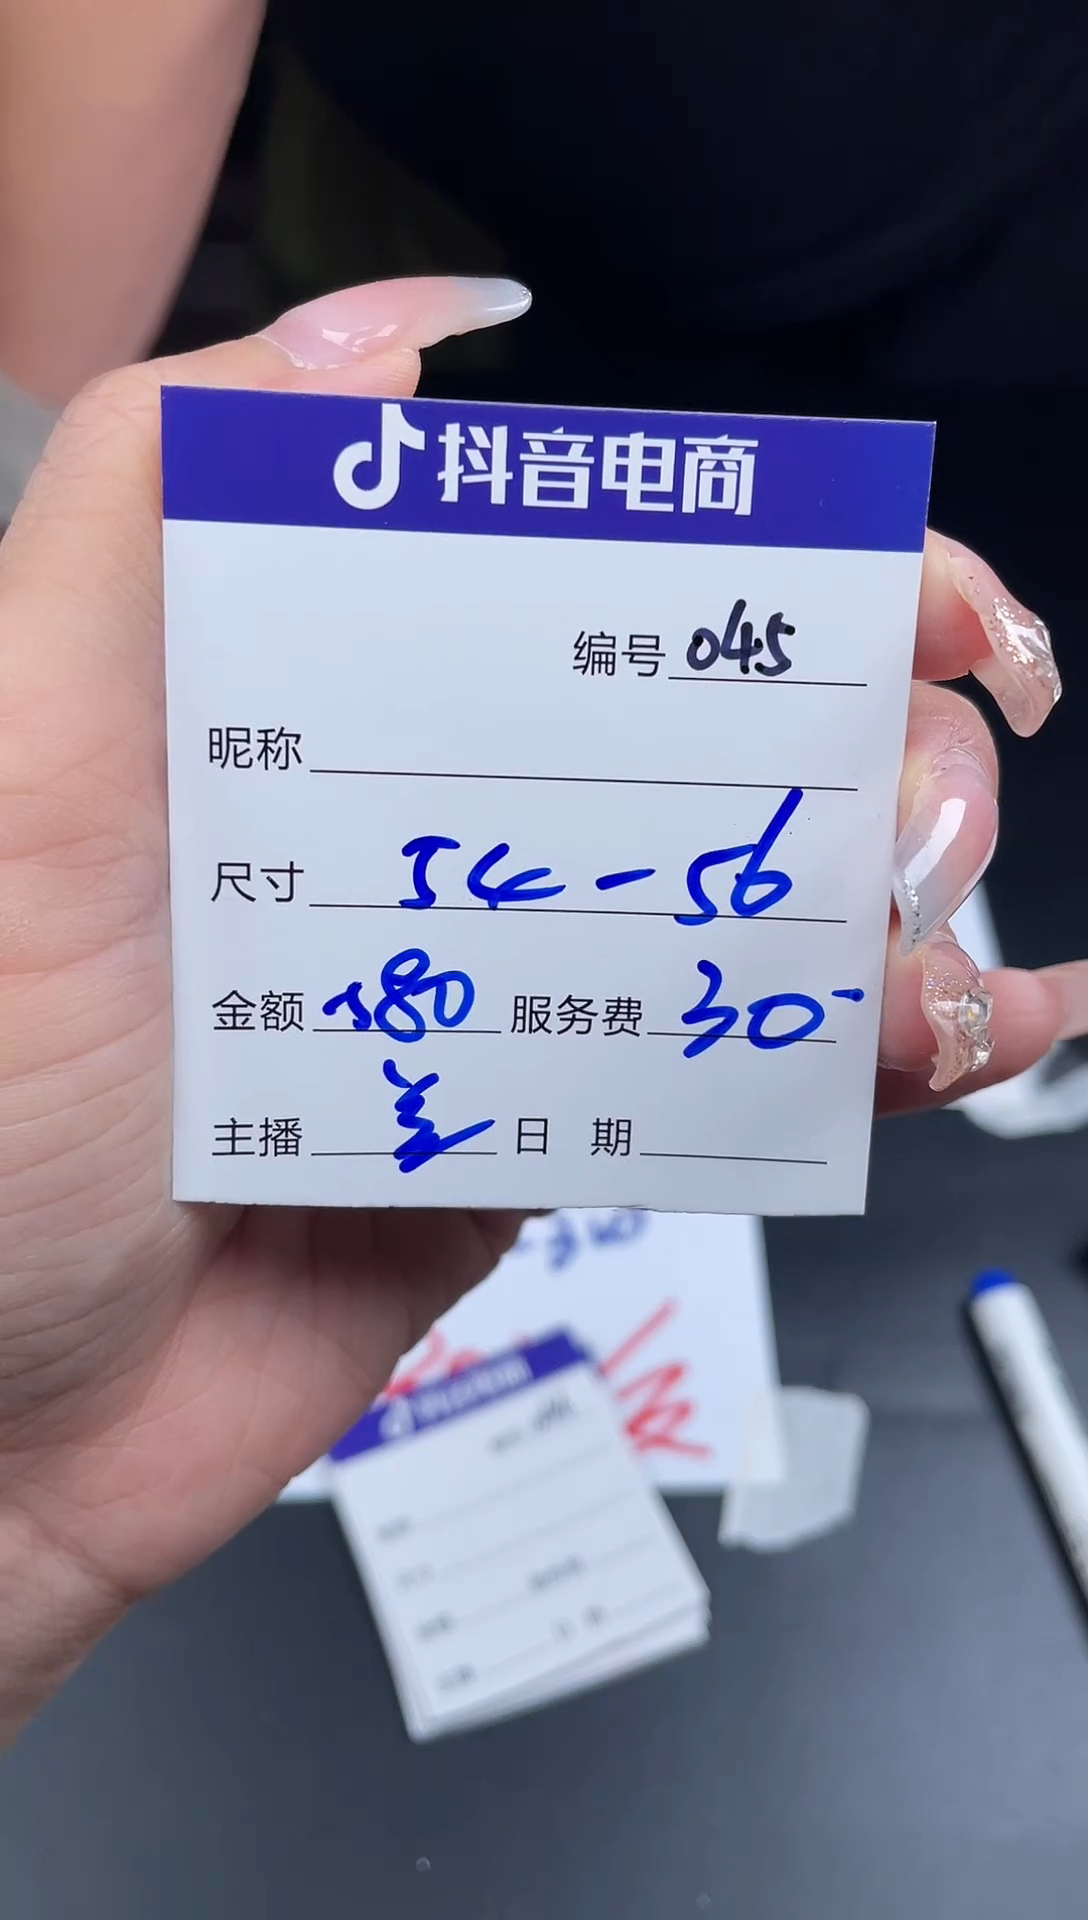 抖音电商
编号 045
昵称
尺寸 54-56
金额 580 服务费 30
主播 兰 日 期